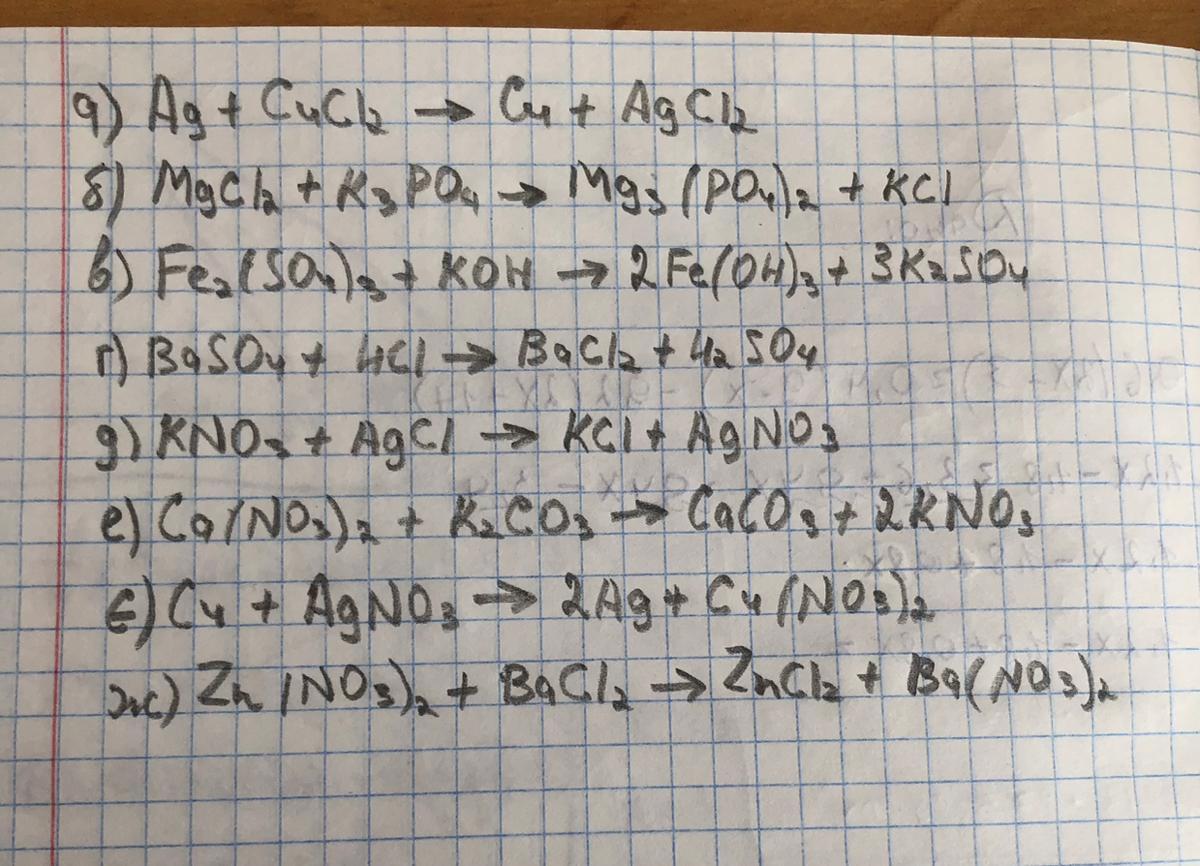 а) Ag + CuCl₂ → Cu + AgCl₂
б) MgCl₂ + K₃PO₄ → Mg₃(PO₄)₂ + KCl
в) Fe₂(SO₄)₃ + KOH → 2Fe(OH)₃ + 3K₂SO₄
г) BaSO₄ + HCl → BaCl₂ + H₂SO₄
д) KNO₃ + AgCl → KCl + AgNO₃
е) Ca(NO₃)₂ + K₂CO₃ → CaCO₃ + 2KNO₃
є) Cu + AgNO₃ → 2Ag + Cu(NO₃)₂
ж) Zn(NO₃)₂ + BaCl₂ → ZnCl₂ + Ba(NO₃)₂